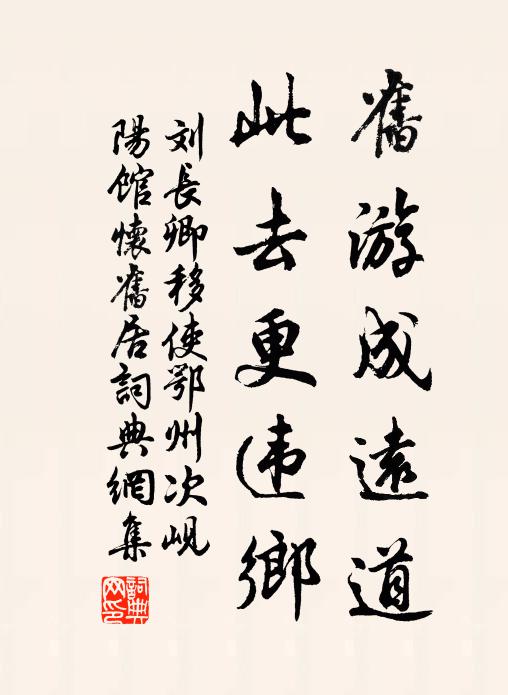 舊游成遠道
此去更违鄉
刘長卿移使鄂州次峴
陽館懷舊居詞典網集
詞典网印